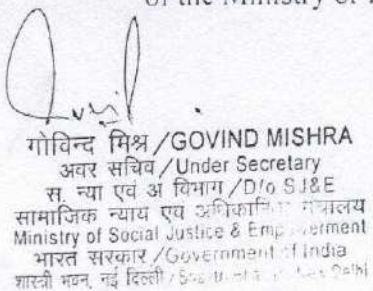 of the Ministry of
गोविन्द मिश्र / GOVIND MISHRA
अवर सचिव / Under Secretary
स. न्या एवं अ विभाग / D/o SJ&E
सामाजिक न्याय एवं मंत्रालय
Ministry of Social Justice & Empowerment
भारत सरकार / Government of India
शास्त्री भवन, नई दिल्ली / Delhi